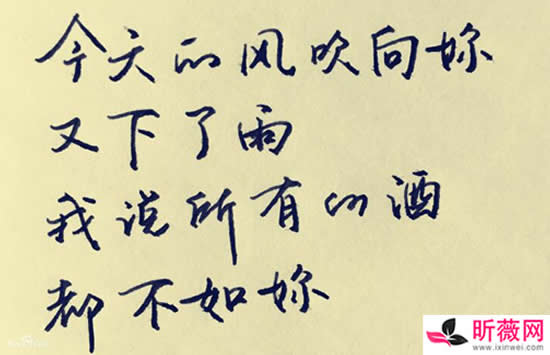 今天的风吹向妳
又下了雨
我说所有的酒
都不如妳
昕薇网
www.ixinwei.com